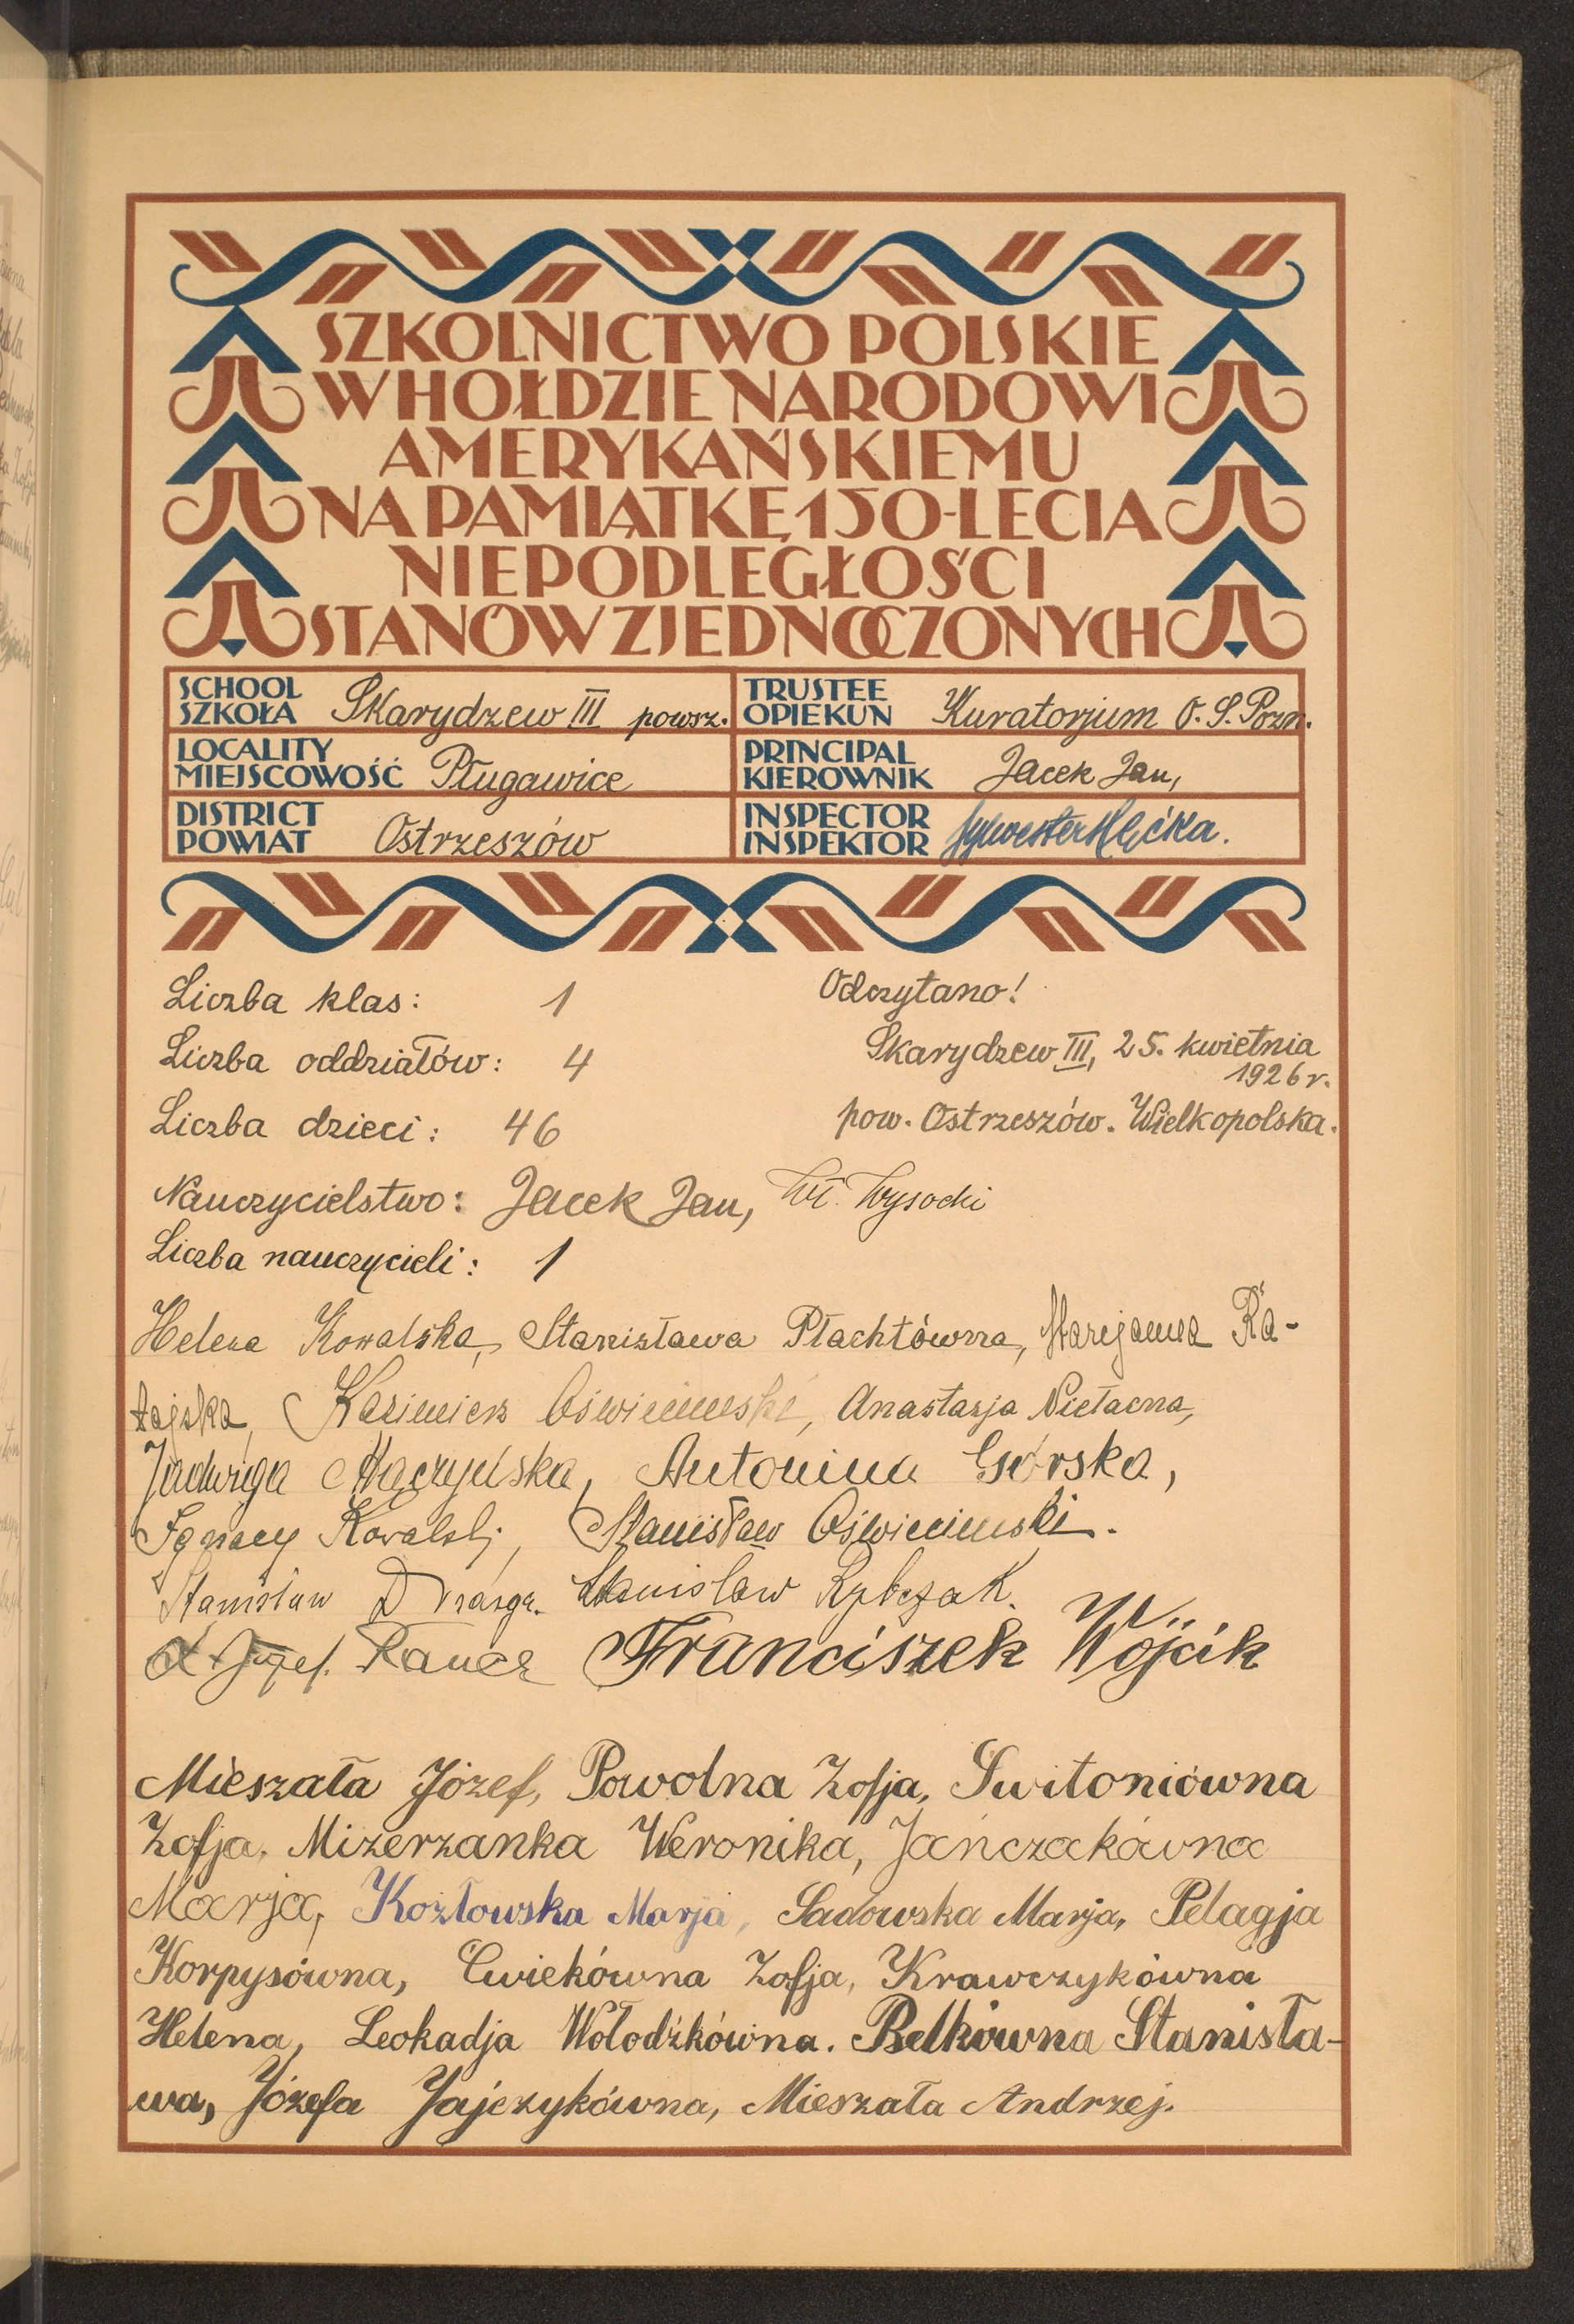 SZKOLNICTWO POLSKIE
W HOŁDZIE NARODOWI
AMERYKAŃSKIEMU
NA PAMIĄTKĘ 150-LECIA
NIEPODLEGŁOŚCI
STANÓW ZJEDNOCZONYCH
SCHOOL
SZKOŁA Skarydzew III powsz.
TRUSTEE
OPIEKUN Kuratorjum O. S. Pozn.
LOCALITY
MIEJSCOWOŚĆ Pługawice
PRINCIPAL
KIEROWNIK Jacek Jan,
DISTRICT
POWIAT Ostrzeszów
INSPECTOR
INSPEKTOR Sylwester
Liczba klas: 1
Odczytano!
Liczba oddziałów: 4
Skarydzew III, 25. kwietnia
1926 r.
Liczba dzieci: 46
pow. Ostrzeszów. Wielkopolska.
Nauczycielstwo: Jacek Jan, Wł. Wysocki
Liczba nauczycieli: 1
Helena Kowalska, Stanisława Płachtówna, Marijanna Ra-
tajska, Kazimierz Oświecimski, Anastazja Nietacna,
Jadwiga Mączyńska, Antonina Górska,
Ignacy Kowalski, Stanisław Oświecimski.
Stanisław Drasga. Stanisław Rybczak.
Józef. Kaucz Franciszek Wójcik
Mieszała Józef, Powolna Zofja, Switoniówna
Zofja, Mizerzanka Weronika, Jańczakówna
Marja, Kozłowska Marja, Sadowska Marja, Pelagja
Korpysówna, Ćwiekówna Zofja, Krawczykówna
Helena, Leokadja Wołodźkówna. Belkówna Stanisła-
wa, Józefa Jajczykówna, Mieszała Andrzej.